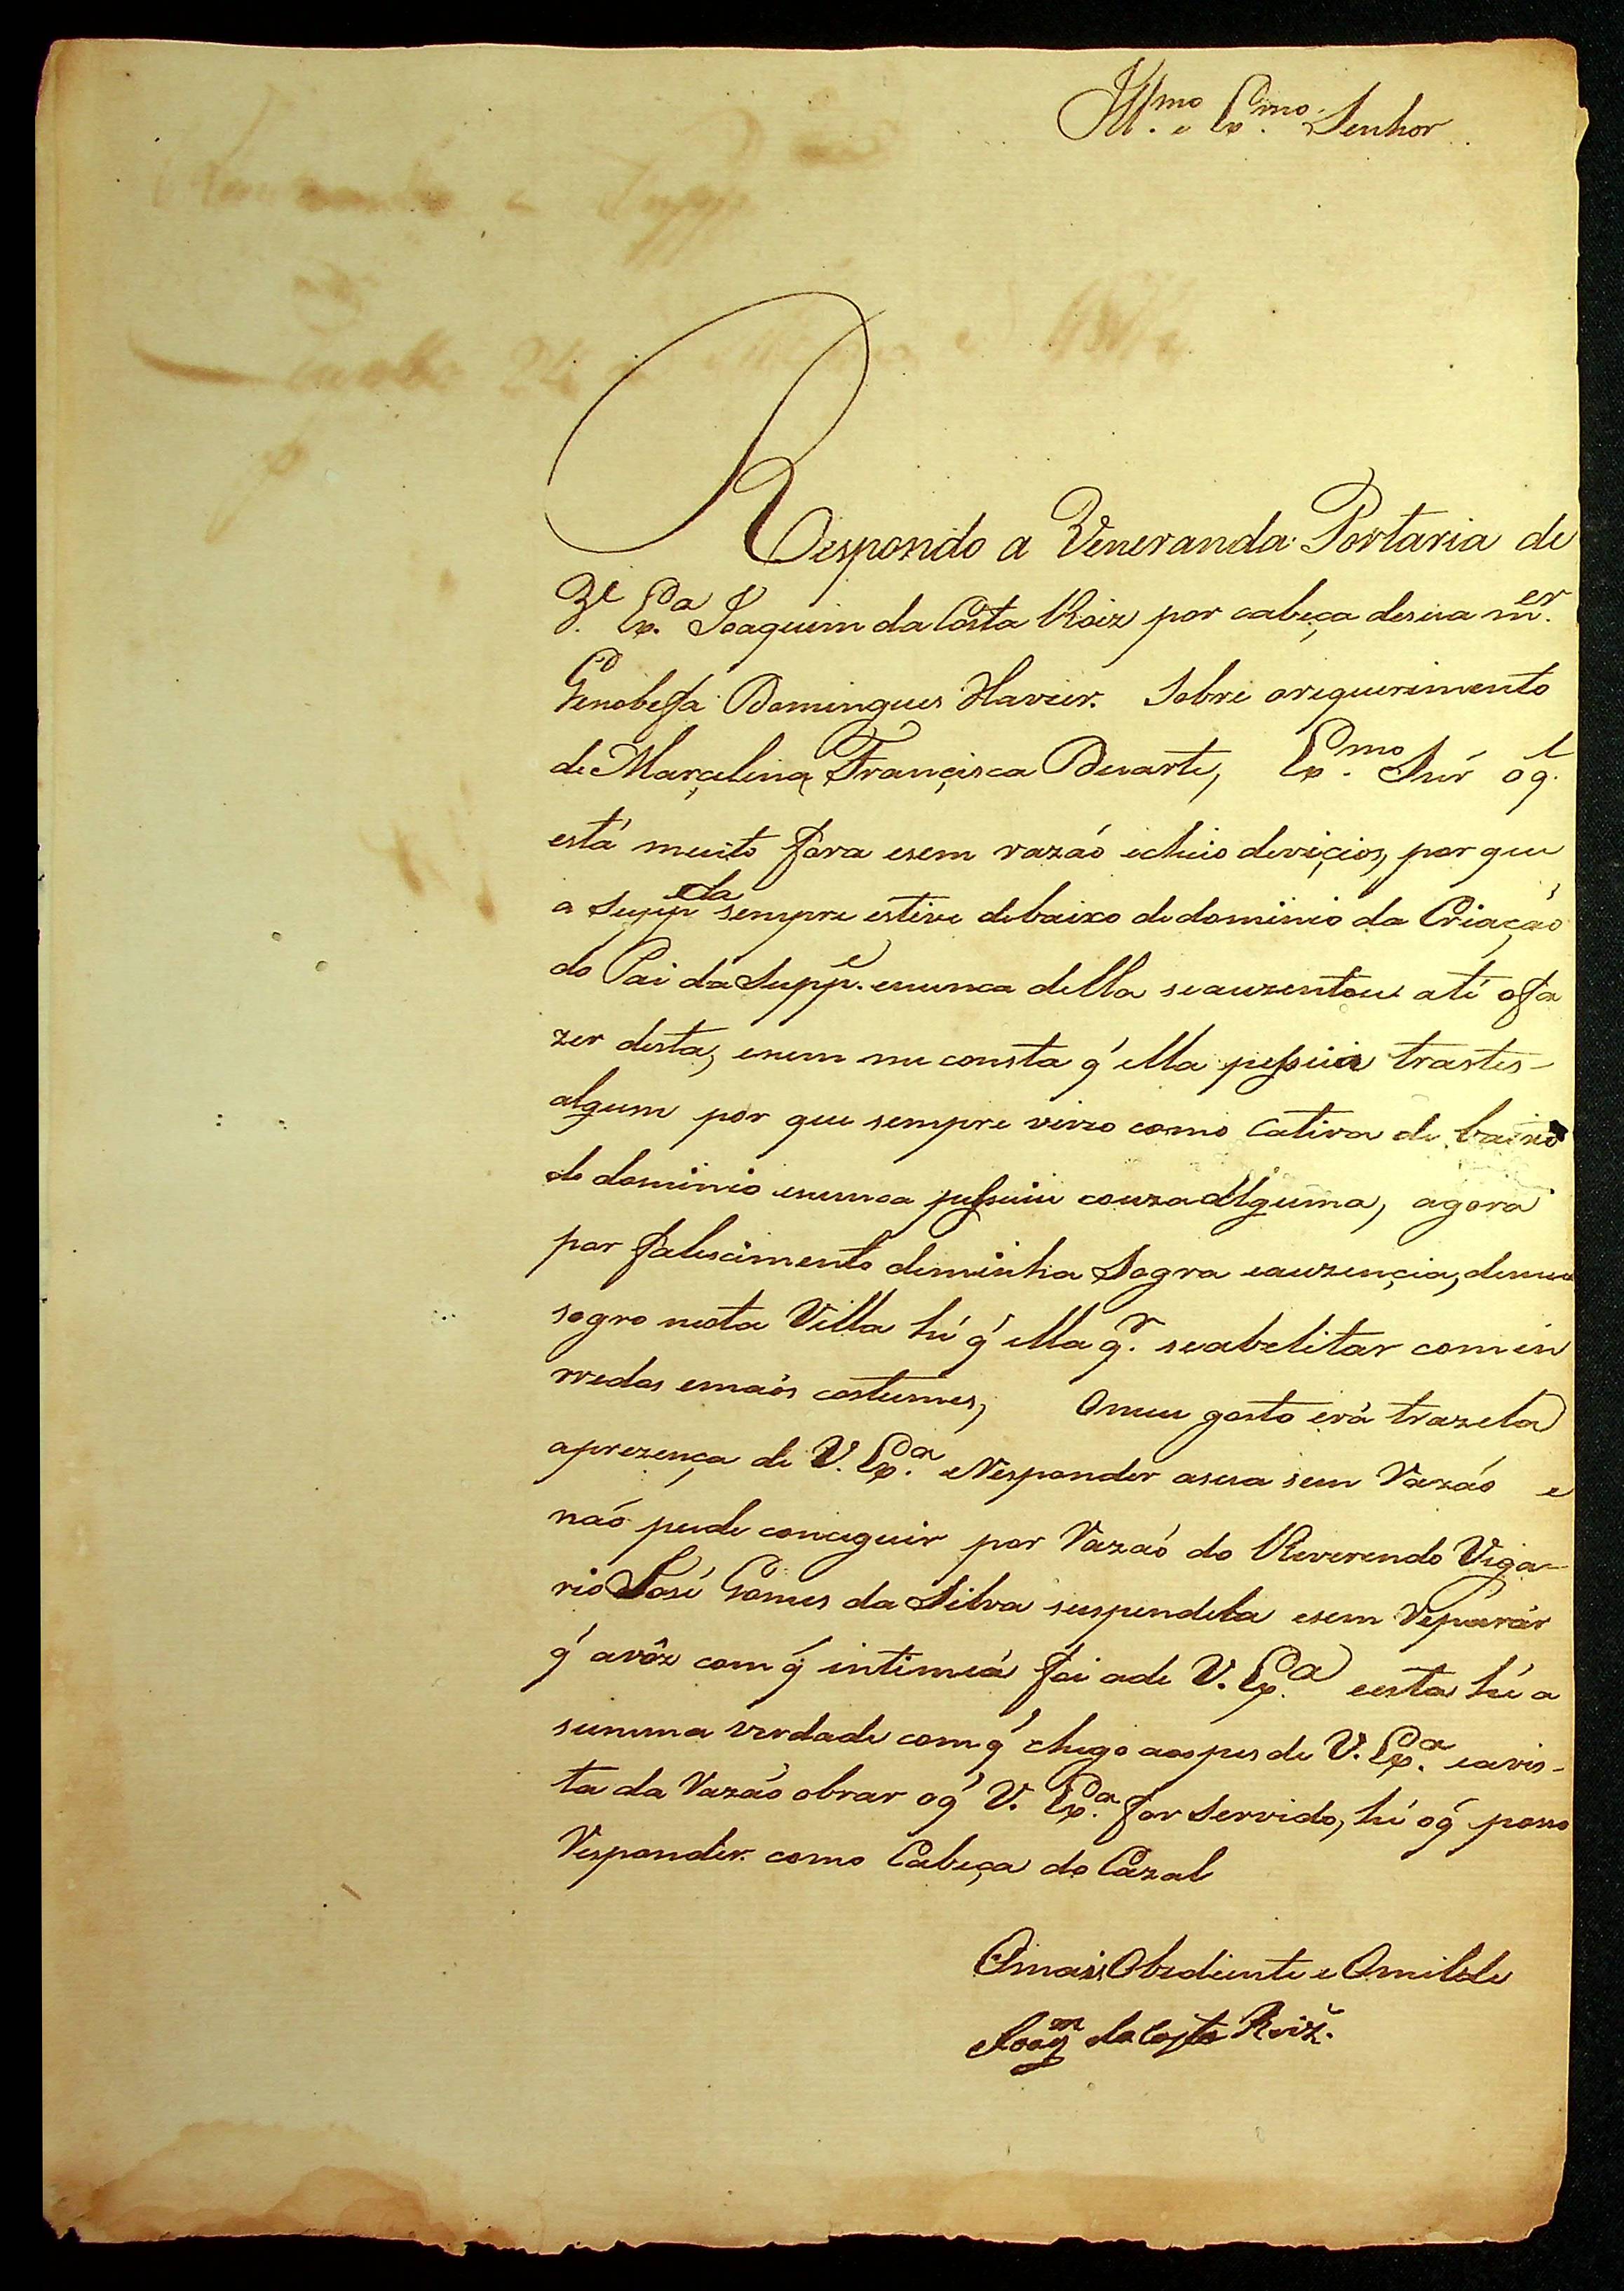 Ill.mo e Ex.mo Senhor
Respondo a Veneranda Portaria de
V.e Ex.a Joaquim da Costa Roiz por cabeça desua m.er
Genobefa Domingues Xavier. Sobre orequerimento
de Marçelina Françisca Duarte, Ex.mo Snr' oq.l
está muito fora esem razaó echeio deviçios, por que
a Supp.da sempre esteve debaixo dedominio da Criação
do Pai da Supp.e enunca della seauzentou até ofa
zer desta, enem me consta q' ella pessuia trastes
algum por que sempre viveo como Cativa de baixo
do dominio enunca pessuiu couza alguma, agora
por falescimento deminha Sogra eauzençia, demeu
sogro nesta Villa hé q' ella q.r seabelitar comen
rredos emaós costumes, Omeu gosto erá trazela
aprezença de V. Ex.a eResponder asua sem Razaó e
naó pude conceguir por Razaó do Reverendo Viga-
rio José Gomes da Silva suspendela esem Reparár
q' avôz com q' intimeá foi ade V. Ex.a eesta hé a
summa verdade com q' chego aospes de V. Ex.a eavis-
ta da Razaó obrar oq' V. Ex.a for Servido, hé oq' posso
Responder como Cabeça do Cazal
Omais Obediente e Omilde
Joaq.m da Costa Roiz.